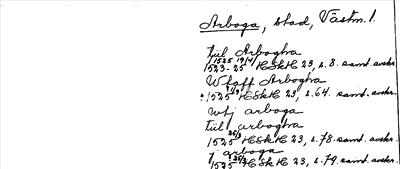 Arboga, stad, Västm. l.
till Arbogha
1525 19/4 HSkH 23, s. 8. samt. avskr.
1523-25
Wtaff Arbogha
1525 HSkH 23, s. 64. samt. avskr.
wtj arboga
till arbogha
1525 HSkH 23, s. 78. samt. avskr.
j arboga
1525 HSkH 23, s. 79. samt. avskr.